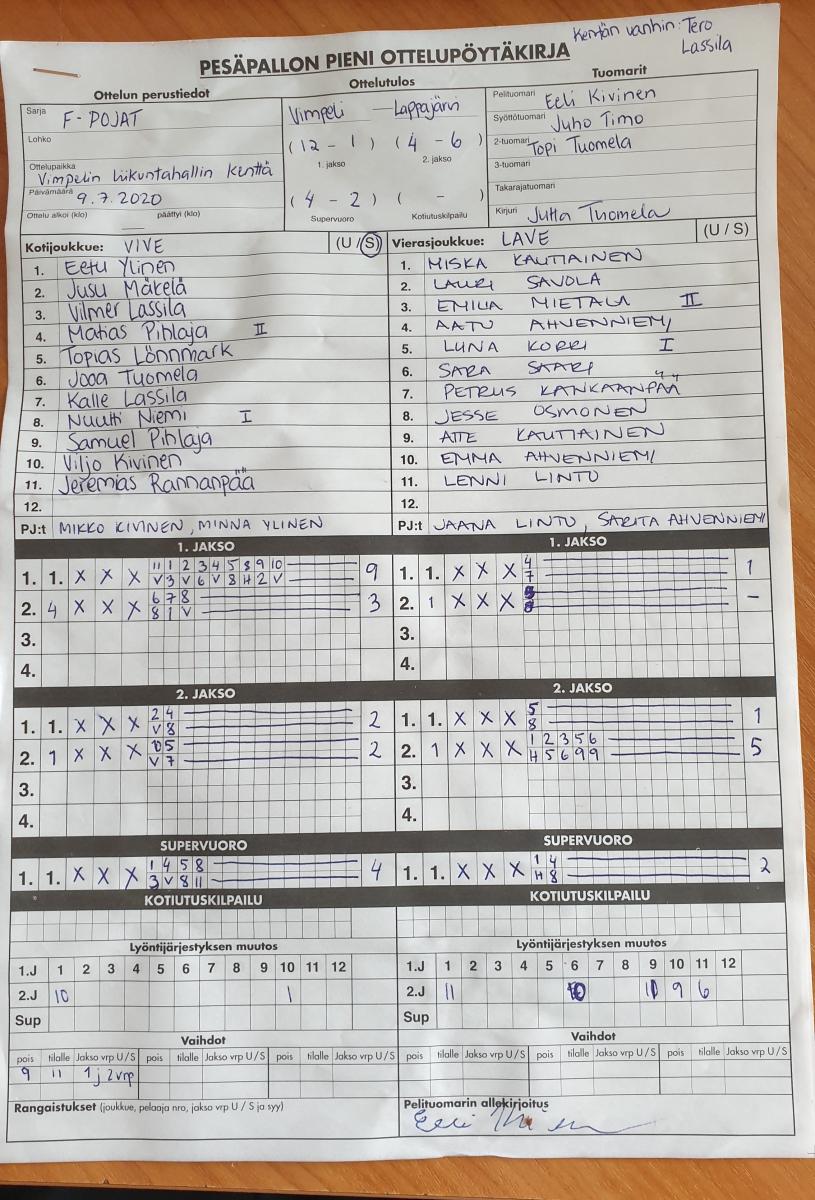 Kentän vanhin: Tero
Lassila
PESÄPALLON PIENI OTTELUPÖYTÄKIRJA
Ottelun perustiedot
Sarja F-POJAT
Lohko
Ottelupaikka
Vimpelin liikuntahallin kenttä
Päivämäärä 9.7.2020
Ottelu alkoi (klo) päättyi (klo)
Ottelutulos
Vimpeli — Lappajärvi
(12 - 1) (4 - 6)
1. jakso 2. jakso
(4 - 2) ( - )
Supervuoro Kotiutuskilpailu
Tuomarit
Pelituomari Eeli Kivinen
Syöttötuomari Juho Timo
2-tuomari Topi Tuomela
3-tuomari
Takarajatuomari
Kirjuri Jutta Tuomela
Kotijoukkue: VIVE (U / S)
1. Eetu Ylinen
2. Jusu Mäkelä
3. Vilmer Lassila
4. Matias Pihlaja II
5. Topias Lönnmark
6. Jooa Tuomela
7. Kalle Lassila
8. Nuutti Niemi I
9. Samuel Pihlaja
10. Viljo Kivinen
11. Jeremias Rannanpää
12.
PJ:t MIKKO KIVINEN, MINNA YLINEN
Vierasjoukkue: LAVE (U / S)
1. MISKA KAUTIAINEN
2. LAURI SAVOLA
3. EMILIA MIETALA II
4. AATU AHVENNIEMI
5. LUNA KORRI I
6. SARA SAARI
7. PETRUS KANKAANPÄÄ
8. JESSE OSMONEN
9. ATTE KAUTIAINEN
10. EMMA AHVENNIEMI
11. LENNI LINTU
12.
PJ:t JAANA LINTU, SARITA AHVENNIEMI
1. JAKSO
11 1 2 3 4 5 8 9 10
1. 1. X X X V 3 V 6 V 8 H 2 V 9
6 7 8
2. 4 X X X 8 1 V 3
3.
4.
1. JAKSO
4
1. 1. X X X 7 1
2. 1 X X X 8 -
3.
4.
2. JAKSO
2 4
1. 1. X X X V 8 2
10 5
2. 1 X X X V 7 2
3.
4.
2. JAKSO
5
1. 1. X X X 8 1
1 2 3 5 6
2. 1 X X X H 5 6 9 9 5
3.
4.
SUPERVUORO
1 4 5 8
1. 1. X X X 3 V 8 11 4
SUPERVUORO
1 4
1. 1. X X X H 8 2
KOTIUTUSKILPAILU
KOTIUTUSKILPAILU
Lyöntijärjestyksen muutos
1.J 1 2 3 4 5 6 7 8 9 10 11 12
2.J 10 1
Sup
Lyöntijärjestyksen muutos
1.J 1 2 3 4 5 6 7 8 9 10 11 12
2.J 11 10 9 6
Sup
Vaihdot
pois tilalle Jakso vrp U/S pois tilalle Jakso vrp U/S pois tilalle Jakso vrp U/S
9 11 1j 2vrp
Vaihdot
pois tilalle Jakso vrp U/S pois tilalle Jakso vrp U/S pois tilalle Jakso vrp U/S
Rangaistukset (joukkue, pelaaja nro, jakso vrp U / S ja syy)
Pelituomarin allekirjoitus
Eeli